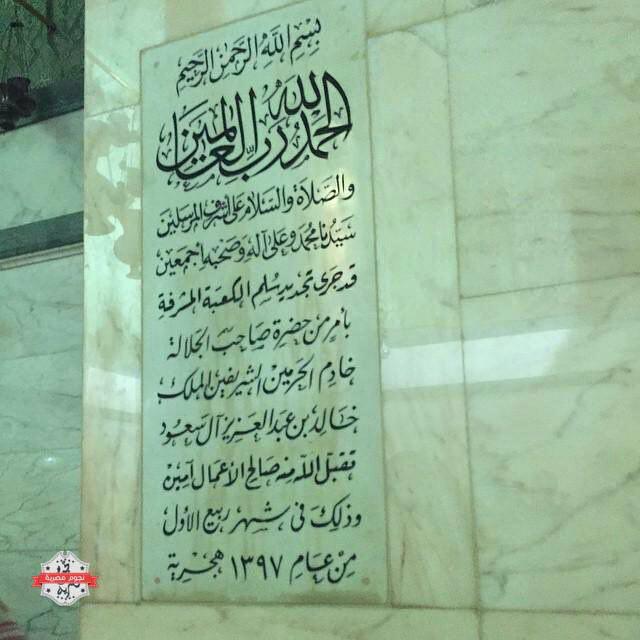 بِسْمِ اللَّهِ الرَّحْمٰنِ الرَّحِيمِ
الحمد لله رب العالمين
والصلاة والسلام على أشرف المرسلين
سيدنا محمد وعلى آله وصحبه أجمعين
قد جرى تجديد سلم الكعبة المشرفة
بأمر من حضرة صاحب الجلالة
خادم الحرمين الشريفين الملك
خالد بن عبد العزيز آل سعود
تقبل الله منه صالح الأعمال آمين
وذلك في شهر ربيع الأول
من عام ١٣٩٧ هجرية
نجوم مصرية